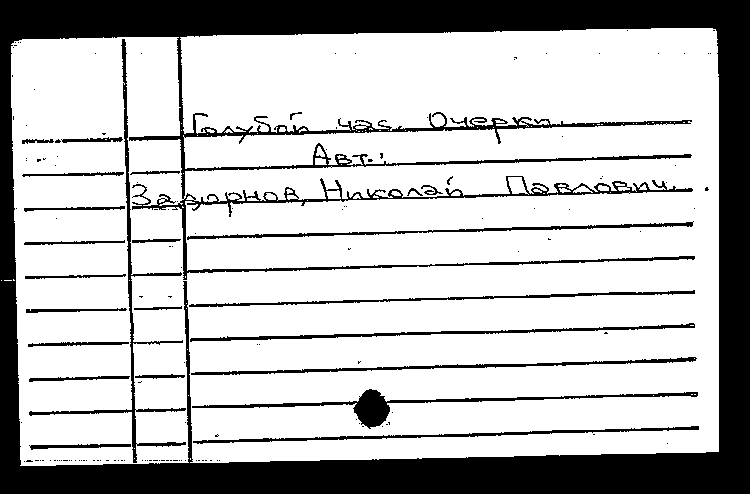 Голубой час. Очерки.
Авт.:
Задорнов, Николай Павлович.